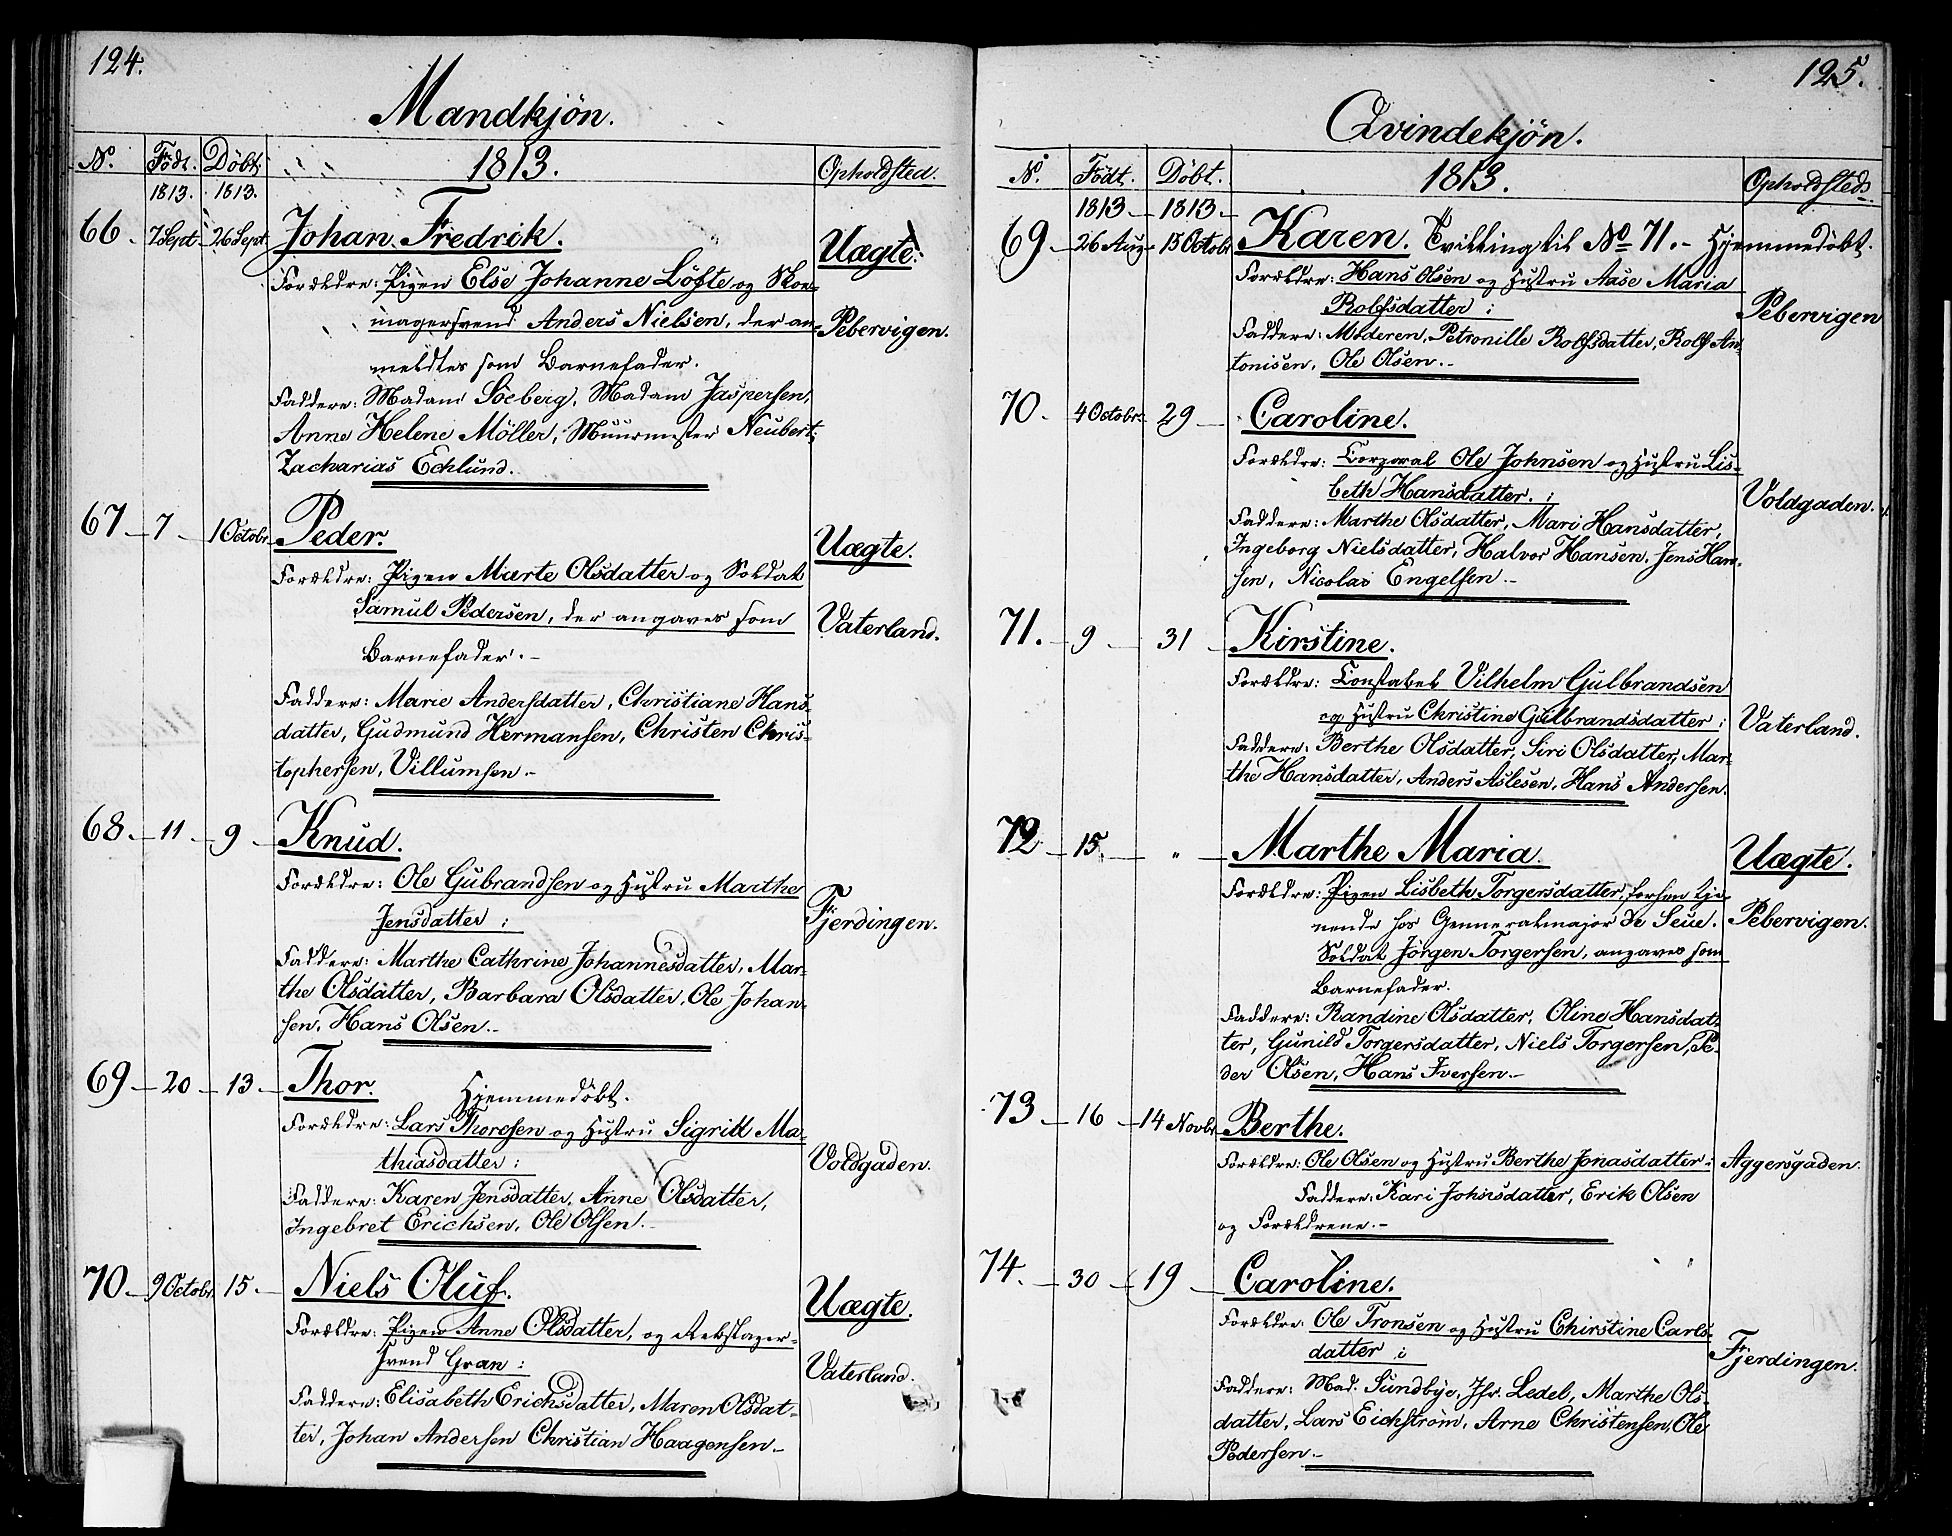 124.
Mandkjön.
No. Födt. Döbt. 1813. Opholdsted.
1813. 1813.
66. 7 Sept. 26 Sept. Johan Fredrik. Uægte.
Forældre: Pigen Else Johanne Löfte og Skoe-
magersvend Anders Nielsen, der an- Pebervigen.
meldtes som Barnefader.
Faddere: Madam Söeberg, Madam Jaspersen,
Anne Helene Möller, Muurmester Neubert,
Zacharias Echlund.
67 - 7 - 1 Octobr. Peder. Uægte.
Forældre: Pigen Marte Olsdatter og Soldat
Samul Pedersen, der angaves som Vaterland.
Barnefader. -
Faddere: Marie Andersdatter, Christiane Hans-
datter, Gudmund Hermansen, Christen Chris-
tophersen, Villumsen. -
68. - 11 - 9 - Knud.
Forældre: Ole Gubrandsen og Hustru Marthe Fjerdingen.
Jensdatter:
Faddere: Marthe Cathrine Johannesdatter, Mar-
the Olsdatter, Barbara Olsdatter, Ole Johan-
sen, Hans Olsen. -
69 - 20 - 13 - Thor. Hjemmedöbt.
Forældre: Lars Thoresen og Hustru Sigritt Ma-
thiasdatter: Voldgaden.
Faddere: Karen Jensdatter, Anne Olsdatter,
Ingebret Erichsen, Ole Olsen. -
70. - 9 Octobr. 15. - Niels Oluf. Uægte.
Forældre: Pigen Anne Olsdatter, og Rebslager-
svend Gran: Vaterland.
Faddere: Elisabeth Erichsdatter, Maren Olsdat-
ter, Johan Andersen Christian Haagensen. -
125.
Qvindekjön.
No. Födt. Döbt. 1813. Opholdsted.
1813 - 1813 -
69 - 26 Aug. 15 Octobr. Karen. Tvilling til No 71. - Hjemmedöbt.
Forældre: Hans Olsen og Hustru Aase Maria
Rolfsdatter: Pebervigen
Faddere: Moderen, Petronille Rolfsdatter, Rolf An-
tonisen, Ole Olsen. -
70. 4 Octobr. 29 - Caroline.
Forældre: Corporal Ole Johnsen og Hustru Lis-
beth Hansdatter.: Voldgaden.
Faddere: Marthe Olsdatter, Mari Hansdatter,
Ingeborg Nielsdatter, Halvor Hansen, Jens Han-
sen, Nicolai Engelsen. -
71. - 9 - 31 - Kirstine.
Forældre: Constabel Vilhelm Gulbrandsen
og Hustru Christine Gulbrandsdatter: Vaterland.
Faddere: Berthe Olsdatter, Siri Olsdatter, Mar-
the Hansdatter, Anders Aslesen, Hans Andersen.
72 - 15. - " - Marthe Maria. Uægte.
Forældre: Pigen Lisbeth Torgersdatter, forhen tje-
nende hos Genneralmajor de Seue. Pebervigen.
Soldat Jörgen Torgersen, angaves som
Barnefader.
Faddere: Randine Olsdatter, Oline Hansdat-
ter, Gunild Torgersdatter, Niels Torgersen, Pe-
der Olsen, Hans Iversen. -
73 - 16 - 14 Novbr. Berthe.
Forældre: Ole Olsen og Hustru Berthe Jonasdatter: Aggersgaden.
Faddere: Kari Johnsdatter, Erik Olsen
og Forældrene. -
74. - 30 - 19 - Caroline.
Forældre: Ole Tronsen og Hustru Chirstine Carls-
datter: Fjerdingen.
Faddere: Mad. Sundbye, Jfr. Ledel, Marthe Ols-
datter, Lars Eichström, Arne Christensen, Ole
Pedersen. -